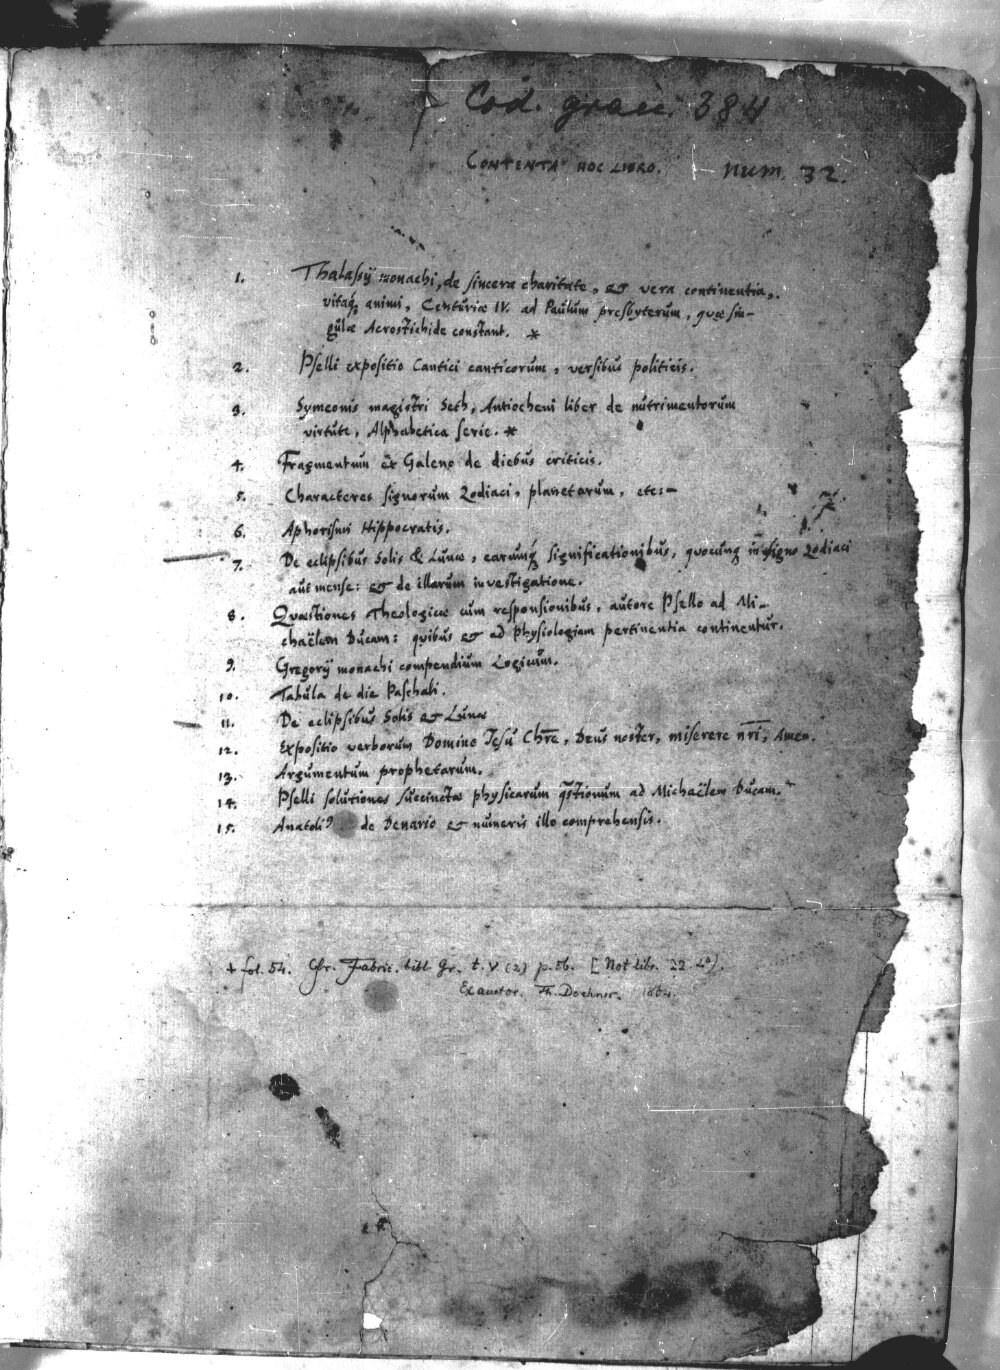 Cod. graec. 384
CONTENTA HOC LIBRO. num. 32.
1. Thalassij monachi, de sincera charitate, et vera continentia,
vitaq; animi, Centuriæ IV. ad Paulum presbyterum, quæ sin-
gulæ Acrostichide constant. *
2. Pselli expositio Cantici canticorum, versibus politicis.
3. Symeonis magistri Seth, Antiocheni liber de nutrimentorum
virtute, Alphabetica serie. *
4. Fragmentum ex Galeno de diebus criticis.
5. Characteres signorum Zodiaci, planetarum, etc:-
6. Aphorismi Hippocratis.
7. De eclipsibus Solis & Lunæ, earumq; significationibus, quocunq; in signo Zodiaci
aut mense: et de illarum investigatione.
8. Quæstiones Theologicæ cum responsionibus, autore Psello ad Mi-
chaëlem Ducam: quibus et ad physiologiam pertinentia continentur.
9. Gregorij monachi compendium Logicum.
10. Tabula de die Paschali.
11. De eclipsibus Solis et Lunæ
12. Expositio verborum Domine Jesu Chre, Deus noster, miserere nri, Amen.
13. Argumentum prophetarum.
14. Pselli solutiones succinctæ physicarum qstionum ad Michaëlem Ducam. +
15. Anatoli9 de Denario et numeris illo comprehensis.
+ fol. 54. Cfr. Fabric. bibl. Gr. t. V (2) p. 56. [Not libr. 22 4°].
Excussor. Th. Doehner. 1864.